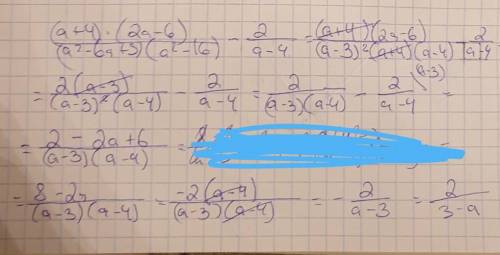 (a+4)·(2a-6)/(a²-6a+9)(a²-16) - 2/a-4 = (a+4)(2a-6)/(a-3)²(a+4)(a-4) - 2/a-4
= 2(a-3)/(a-3)²(a-4) - 2/a-4 = 2/(a-3)(a-4) - 2/a-4 (a-3) =
= 2-2a+6/(a-3)(a-4) = =
= 8-2a/(a-3)(a-4) = -2(a-4)/(a-3)(a-4) = - 2/a-3 = 2/3-a